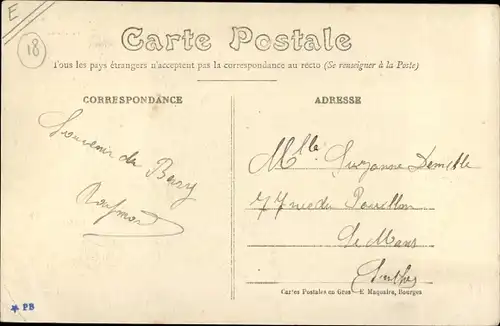 E
18
Carte Postale
Tous les pays étrangers n'acceptent pas la correspondance au recto (Se renseigner à la Poste)
CORRESPONDANCE
ADRESSE
Souvenir du Berry
Raymond
Mlle Suzanne
77 rue du
Le Mans
Sarthe
Cartes Postales en Gros — E. Maquaire, Bourges
PB